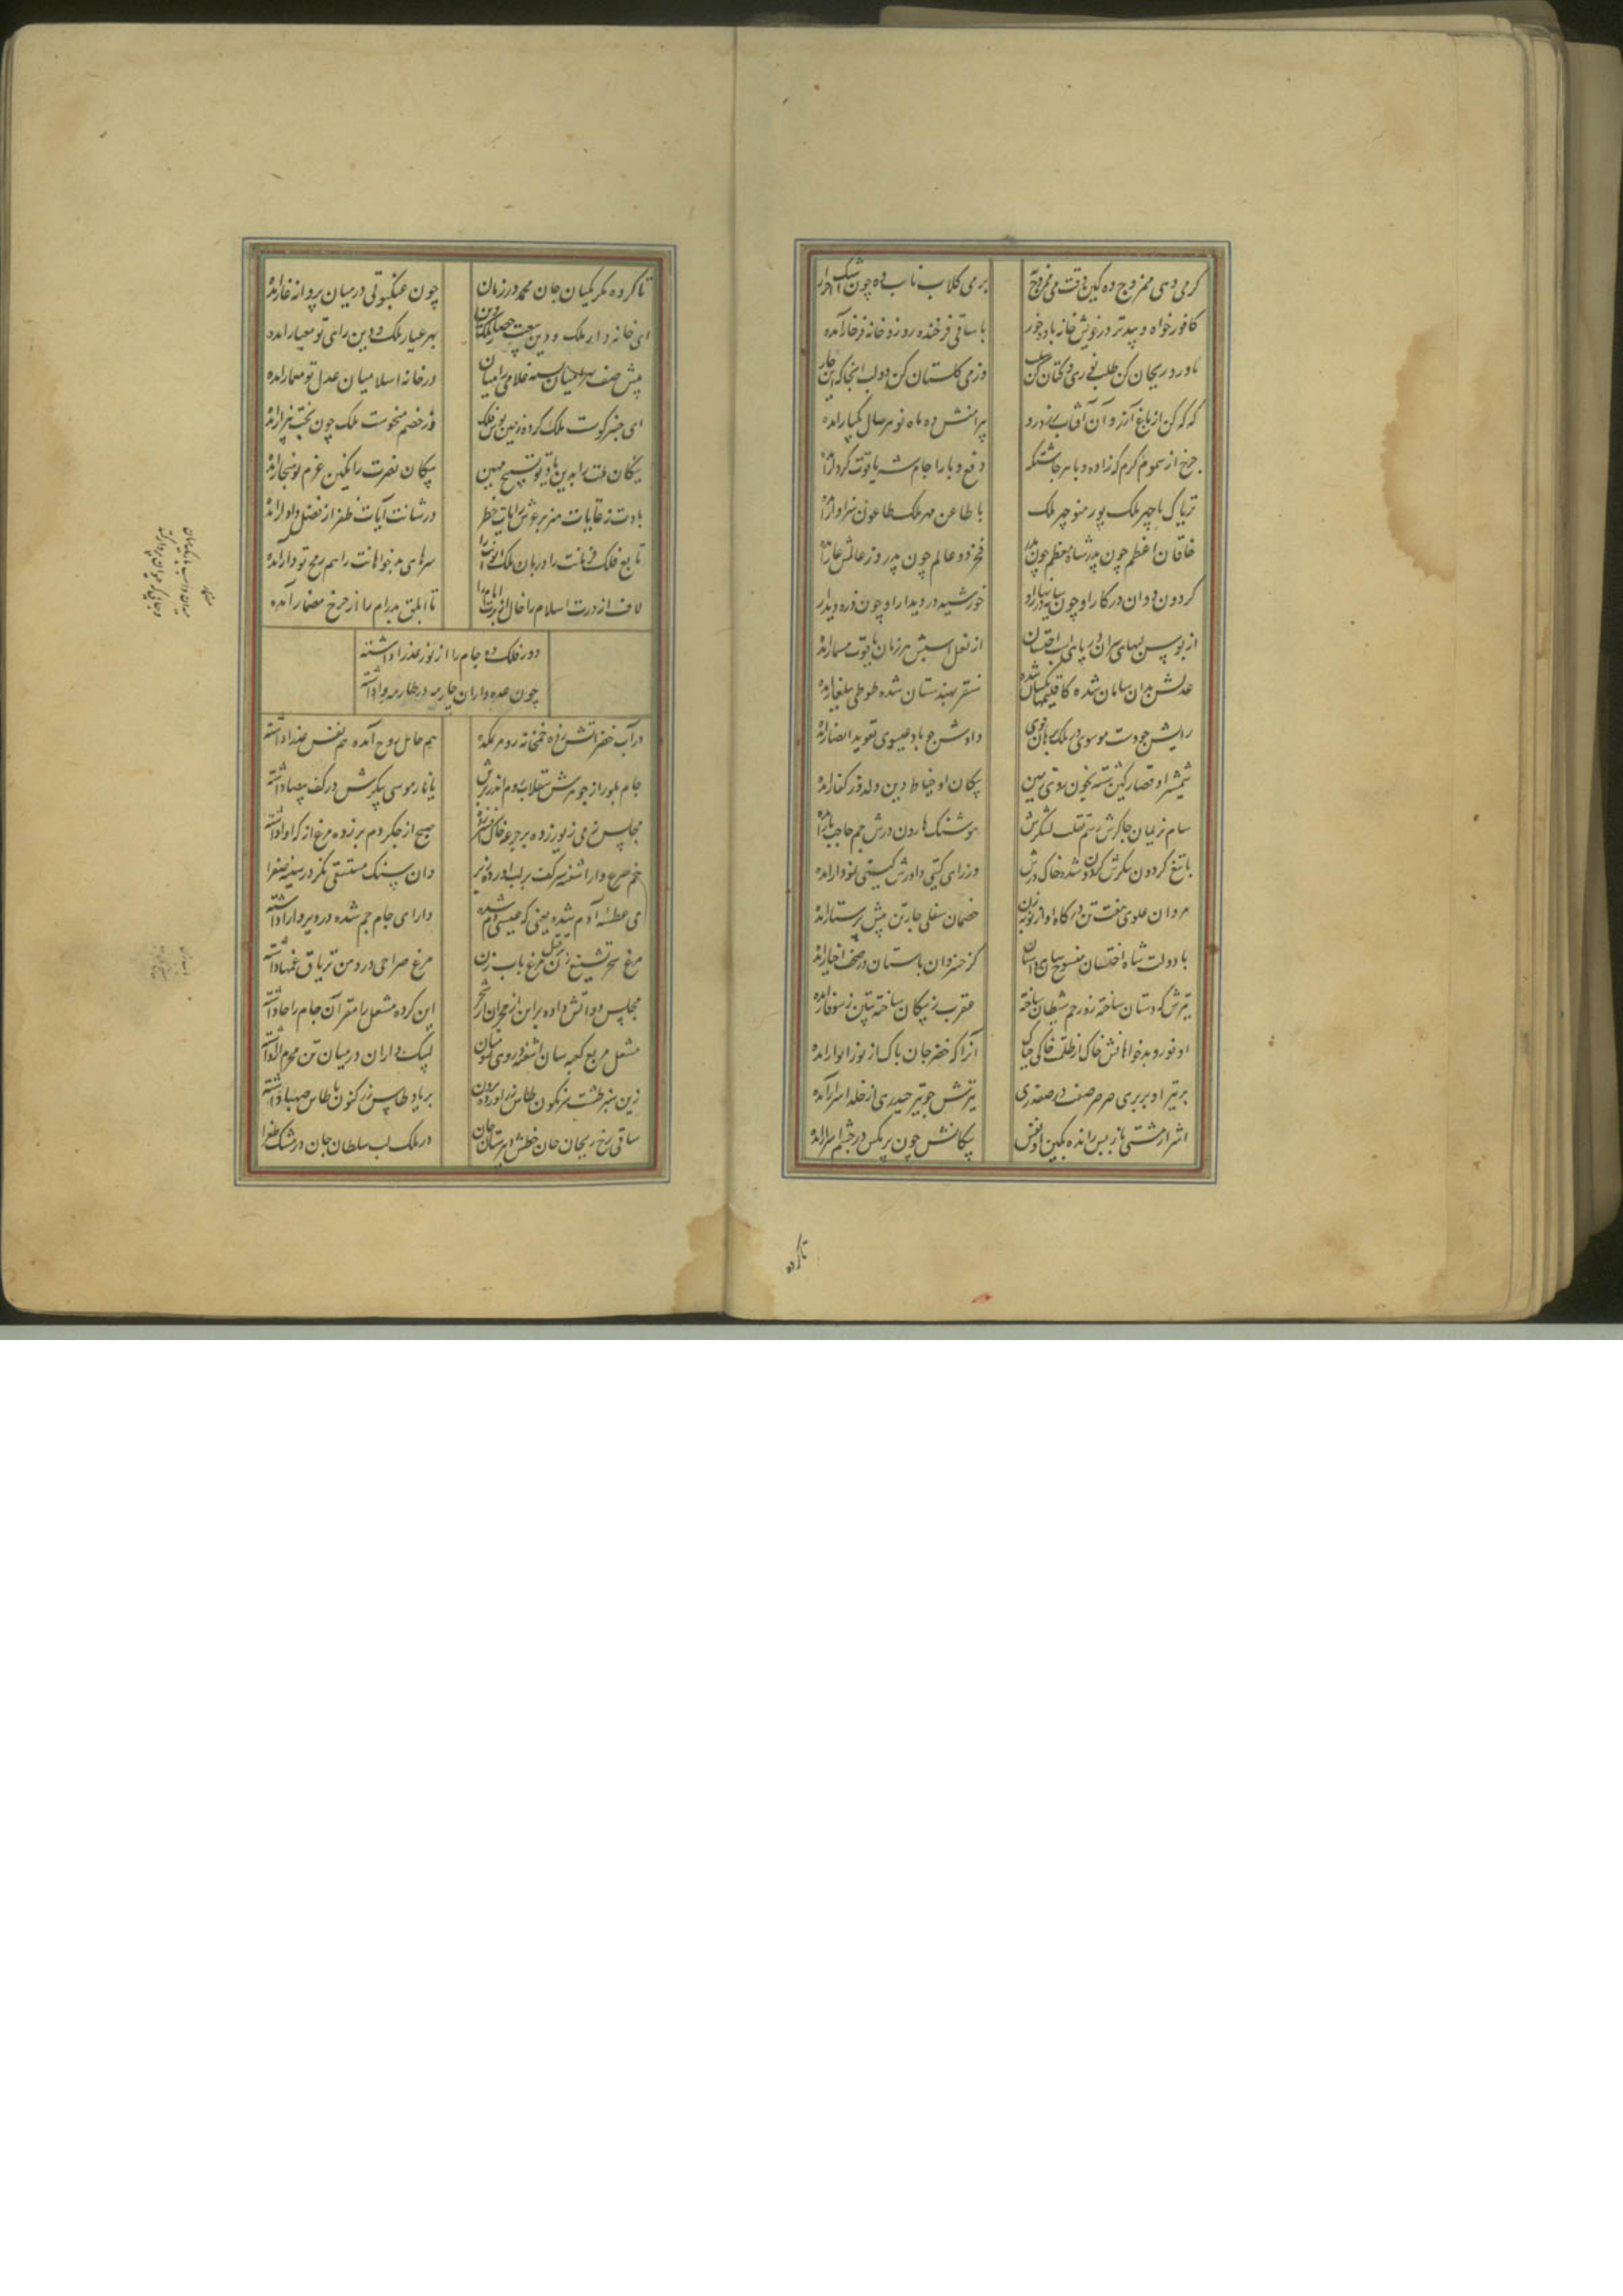 گر می دهی ممزوج ده کین وقت می ممزوج
بر می گلاب ناب ده چون اشک احرار
کافور خواه و بید تر در خویش خانه باده خور
با ساقی فرخنده رو زو خانه فرخار آمده
با ورد و ریحان کن طلب
وز می گلستان کن دو لب آنجا که این
که که کن از باغ آرزو آن آفتاب زرد رو
پیرامنش ده ماه نو هر سال یکبار آمده
چرخ از سموم گرم که زاده وبا هر چاشتگه
دفع وبا را جام شه یاقوت کردار
تریاک ما چهر ملک پور منوچهر ملک
با طاعن مهر ملک طاعون سزاوار
خاقان اعظم چون پدر شاه معظم چون پدر
فخر دو عالم چون پدر وز عالمش عار آمده
گردون دوان در کار او چون سایه
خورشید در دیدار او چون ذره دیدار
از بوس لبهای سران بر پای اسب اخستان
از نعل اسبش هر زمان یاقوت مسمار آمده
عدلش بدان سامان شده کاقلیمها یکسان شده
سنقر بهندستان شده طوطی ببلغار آمده
رایش چو دست موسوی در ملک برهان قوی
دادش چو باد عیسوی تعوید انصار آمده
شمشیر او قصار کین شسته بخون روی زمین
پیکان او خیاط دین دلدوز کفار آمده
سام نریمان چاکرش رستم نقیب لشکرش
هوشنگ هارون درش جم حاجب بار آمده
با تیغ گردون پیکرش گردون شده خاک درش
وز رای گیتی داورش گیتی نمودار آمده
مردان علوی هفت تن درگاه او را نوبه زن
خصمان سفلی چار زن پیش پرستار آمده
با دولت شاه اخستان منسوخ دان
کز خسروان باستان در صحف اخبار آمده
تیرش که دستان ساخته زو رجم شیطان ساخته
عقرب ز پیکان ساخته تنین ز سوفار آمده
او نور و بدخواهانش خاک از ظلمت خاکی چه باک
آنرا که خضر جان پاک از نور انوار آمده
بر تیر او پر پری صرصر صفت در صفدری
تیرش چو تیر حیدری از خلد اسرار آمده
اشرار مشتی بازپس رانده بکین او نفس
پیکانش چون پر مگس در چشم اشرار آمده
تا کرده
تا کرده مکر مکیان جان محمد در زمان
چون عنکبوتی در میان پروانه غار آمده
ای خانه دار ملک و دین تیغت حصار ملک دین
بهر عیار ملک و دین رای تو معیار آمده
پیش صف بهرامیان بسته غلامی را میان
در خانه اسلامیان عدل تو معمار آمده
ای چتر گویت ملک کرده زمین بوس فلک
وز خصم منحوست ملک چون بخت بیزار آمده
پیکان نصرت را یقین عزم تو
بادت ز غایات هنر بر عرش رایات خطر
در شانت آیات ظفر از فضل دادار آمده
تابع فلک فرمانت را دربان ملک ایوانت را
سرهای بدخواهانت را هم رمح تو دار آمده
لاف از درت اسلام را
تا ابلق بدرام را از چرخ مضمار آمده
دور فلک ده جام را از نور عذرا داشته
چون عده داران چار مه در طارم مینا داشته
در آب خضر آتش زده خمخانه زو مریمکده
هم حامل روح آمده هم نفس عذرا داشته
جام بلور از جوهرش سقلاب و روم اندر برش
یا نار موسی پیکرش در کف بیضا داشته
مجلس ز می زیور زده بر جرعه خاک افسر زده
صبح از جگر دم بر زده مرغ از گلو آوا داشته
خم صرع دار آشفته سر کف بر لب آورده ز بر
وان سنگ مستسقی نگر در سینه صفرا داشته
می عطسه آدم شده یعنی که عیسی دم شده
دارای جام جم شده در دیر دارا داشته
مرغ سحر تشنیع زن بر قتل مرغ باب زن
مرغ صراحی در دهن تریاق غمها داشته
مجلس دو آتش داده بر این از حجر آن از شجر
این کرده منقل را مقر آن جام را جا داشته
منقل مربع کعبه سان آشفته در وی
لبیک داران در میان تن محرم آسا داشته
زین سبز طشت سرنگون طاس زر آورده برون
بر یاد طاس زر کنون ما طاس صهبا داشته
ساقی رخ ریحان جان خطش دبیرستان جان
در ملک لب سلطان جان در مشک طغرا